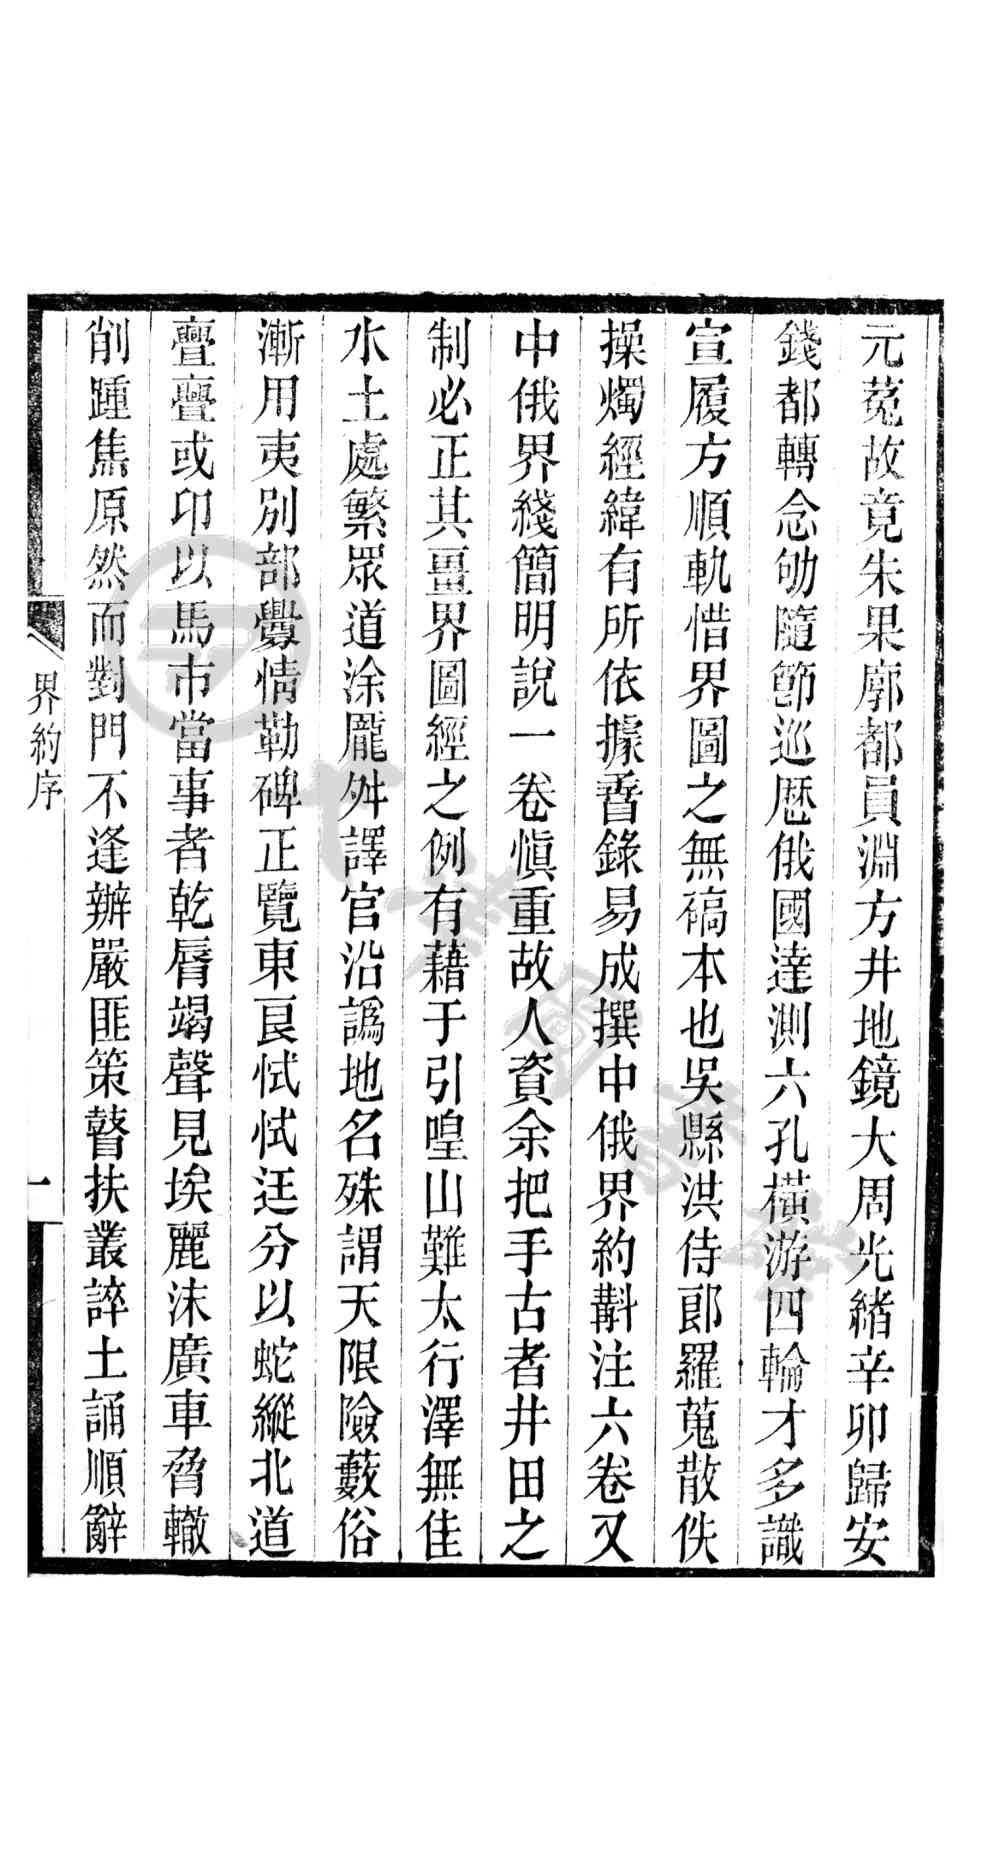 元菟故竟朱果廓都員淵方井地鏡大周光緒辛卯歸安
錢都轉念劬隨節巡厯俄國達測六孔橫游四輪才多識
宣履方順軌惜界圖之無稿本也吳縣洪侍郎羅蒐散佚
操燭經緯有所依據晉錄易成撰中俄界約斠注六卷又
中俄界綫簡明說一卷愼重故人資余把手古者井田之
制必正其畺界圖經之例有藉于引喤山難太行澤無佳
水土處繁眾道涂龎舛譯官沿譌地名殊謂天限險藪俗
漸用夷別部釁情勒碑正覽東艮恜恜迋分以蛇縱北道
亹亹或印以馬市當事者乾脣竭聲見埃麗沬廣車脅轍
削踵焦原然而對門不逢辦嚴匪策瞽扶叢誶土誦順辭
界約序
一